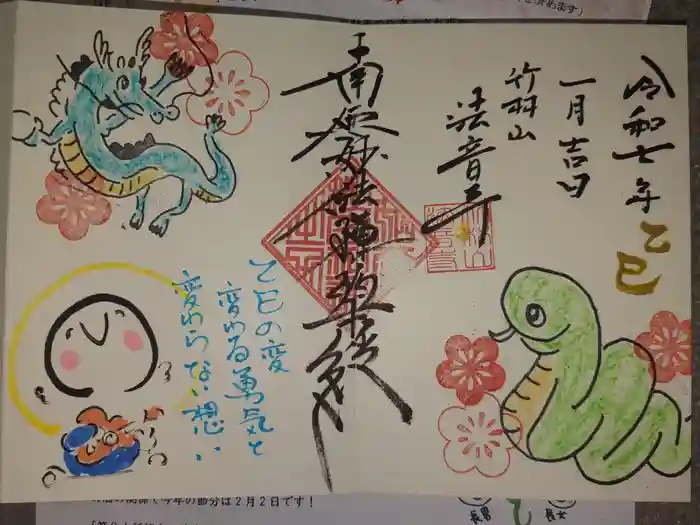 令和七年
乙巳
一月吉日
竹林山
法音寺
南無妙法蓮華経
乙巳の変
変わる勇気と
変わらない想い
の関係で今年の節分は2月2日です！
長男
長女